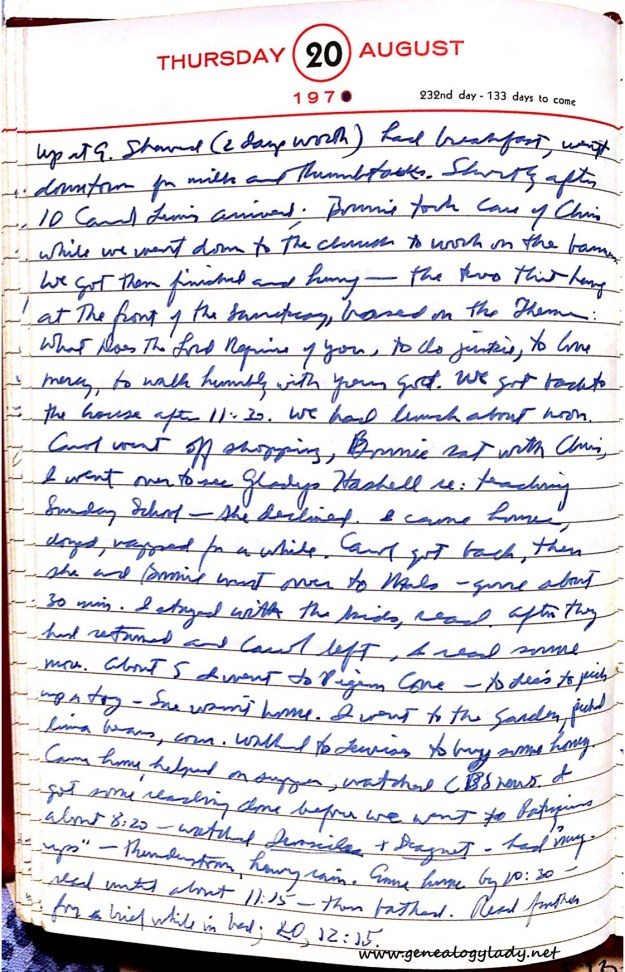 THURSDAY 20 AUGUST
197
232nd day - 133 days to come
Up at 9. Showered (2 days worth) had breakfast, went
downtown for milk and thumbtacks. Shortly after
10 Carol Lewis arrived; Bonnie took care of Chris
while we went down to the church to work on the
We got them finished and hung — the two that hang
at the front of the Sanctuary, based on the Theme:
What Does The Lord Require of you, to do justice, to love
mercy, to walk humbly with your God. We got back to
the house after 11:30. We had lunch about noon.
Carol went off shopping, Bonnie sat with Chris,
I went over to see Gladys Haskell re: teaching
Sunday School — she declined. I came home,
dozed, rapped for a while. Carol got back, then
she and Bonnie went over to — gone about
30 min. I stayed with the kids, read. After they
had returned and Carol left, I read some
more. About 5 I went to Pigeon Cove — to to pick
up a toy — She wasn't home. I went to the Garden, picked
lima beans, corn. Walked to Lewises to buy some honey.
Came home, helped on supper, watched CBS news. I
got some reading done before we went to
about 8:20 — watched + Dragnet — had
ups" — thunderstorm, heavy rain. Came home by 10:30 —
read until about 11:15 — then bathed. Read further
for a brief while in bed; LO, 12:15.
www.genealogylady.net